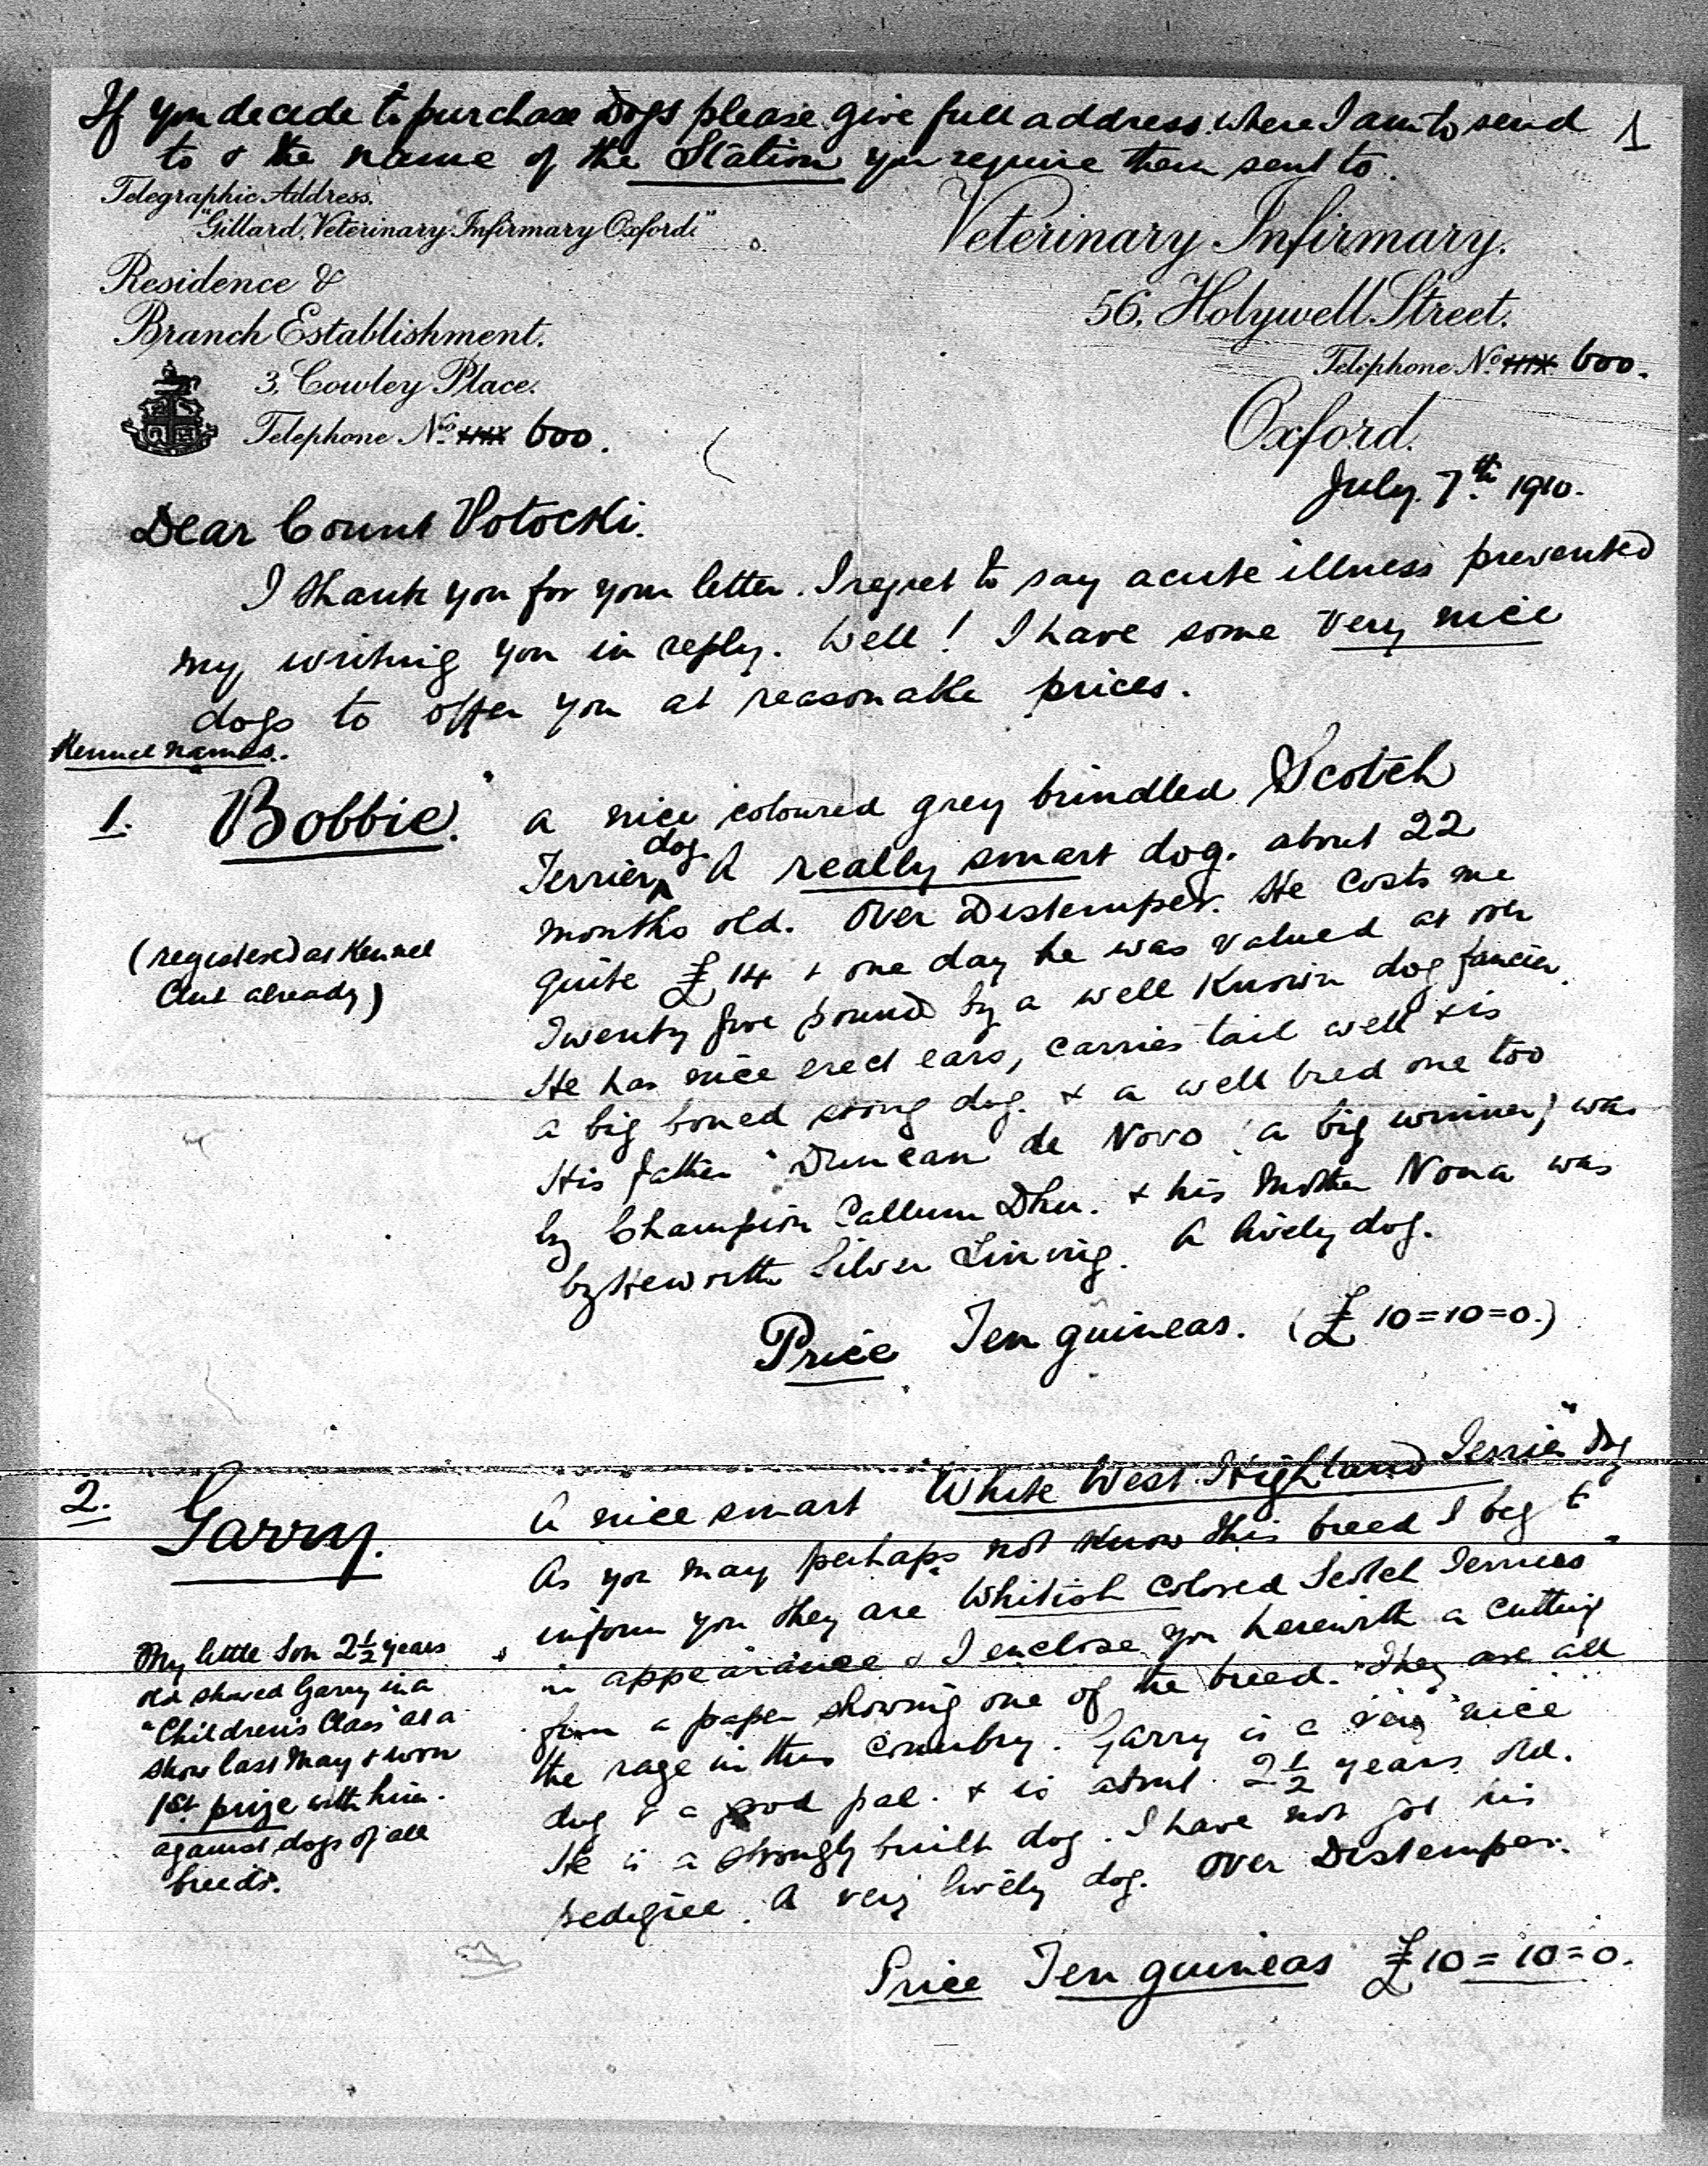 If you decide to purchase Dogs please give full address where I am to send 1
to & the name of the Station you require them sent to.
Telegraphic Address.
"Gillard, Veterinary Infirmary Oxford."
Veterinary Infirmary.
Residence &
Branch Establishment.
56, Holywell Street.
Telephone No. 600.
3, Cowley Place.
Telephone No. 600.
Oxford.
July. 7th 1910.
Dear Count Potocki.
I thank you for your letter. I regret to say acute illness prevented
my writing you in reply. Well! I have some very nice
dogs to offer you at reasonable prices.
Kennel names.
1. Bobbie.
a nice coloured grey brindled Scotch
Terrier dog. A really smart dog. about 22
months old. Over Distemper. He costs me
quite £14 & one day he was valued at over
Twenty five pound by a well known dog fancier.
He has nice erect ears, carries tail well & is
a big boned strong dog. & a well bred one too
His father "Duncan de Novo (a big winner) was
by Champion Callum Dhu. & his Mother Nona was
by Heworth Silver Lining. A lively dog.
(registered at Kennel
Club already)
Price Ten guineas. (£10=10=0.)
2. Garry.
A nice smart "White West Highland Terrier" dog
As you may perhaps not know this breed I beg to
inform you they are Whitish colored Scotch Terriers
in appearance & I enclose you herewith a cutting
from a paper showing one of the breed. They are all
the rage in this country. Garry is a very nice
dog & a good pal. & is about 2½ years old.
He is a strongly built dog. I have not got his
pedigree. A very lively dog. Over Distemper.
My little Son 2½ years
old showed Garry in a
"Children's Class" at a
show last May & won
1st prize with him.
against dogs of all
breeds.
Price Ten guineas £10=10=0.